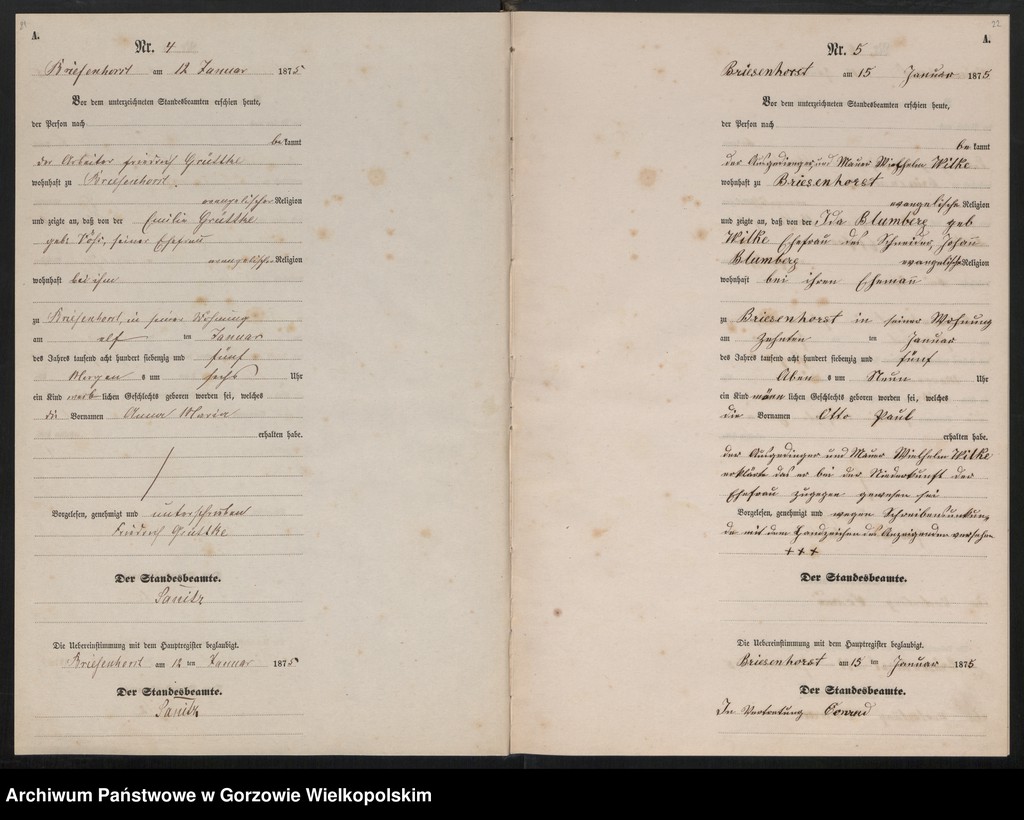 A.
Nr. 4
Briesenhorst am 12 Januar 1875
Vor dem unterzeichneten Standesbeamten erschien heute,
der Person nach
bekannt
der Arbeiter Friedrich Grüttke
wohnhaft zu Briesenhorst.
evangelischer Religion
und zeigte an, daß von der Emilie Grüttke
geb. seiner Ehefrau
evangelischer Religion
wohnhaft bei ihm
zu Briesenhorst, in seiner Wohnung
am elf ten Januar
des Jahres tausend acht hundert siebenzig und fünf
Morgens um sechs Uhr
ein Kind weiblichen Geschlechts geboren worden sei, welches
die Vornamen Anna Maria
erhalten habe.
Vorgelesen, genehmigt und unterschrieben
Friedrich Grüttke
Der Standesbeamte.
Die Uebereinstimmung mit dem Hauptregister beglaubigt.
Briesenhorst am 12 ten Januar 1875
Der Standesbeamte.
22
A.
Nr. 5
Briesenhorst am 15 Januar 1875
Vor dem unterzeichneten Standesbeamten erschien heute,
der Person nach
bekannt
der Ausgedinger und Maurer Wielhelm Wilke
wohnhaft zu Briesenhorst
evangelische Religion
und zeigte an, daß von der Ida Blumberg geb
Wilke Ehefrau des Schneider, Johan
Blumberg evangelische Religion
wohnhaft bei ihren Eheman
zu Briesenhorst in seiner Wohnung
am Zehnten ten Januar
des Jahres tausend acht hundert siebenzig und fünf
Abens um Neun Uhr
ein Kind männlichen Geschlechts geboren worden sei, welches
die Vornamen Otto Paul
erhalten habe.
der Ausgedinger und Maurer Wielhelm Wilke
erklärte das er bei der Niederkunft der
Ehefrau zugegen gewesen sei
Vorgelesen, genehmigt und wegen Schreibensunkun
de mit dem Handzeichen des Anzeigenden versehen
+++
Der Standesbeamte.
Die Uebereinstimmung mit dem Hauptregister beglaubigt.
Briesenhorst am 15 ten Januar 1875
Der Standesbeamte.
In Vertretung Conrad
Archiwum Państwowe w Gorzowie Wielkopolskim